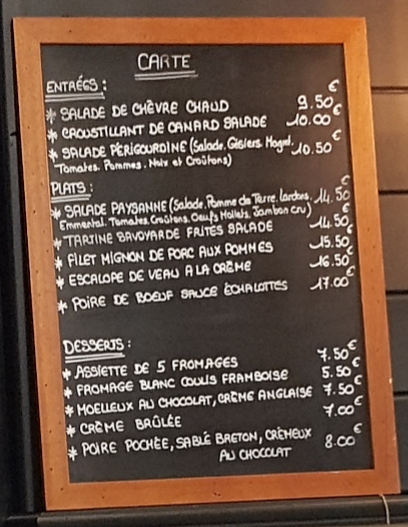 CARTE
ENTRÉES :
* SALADE DE CHÈVRE CHAUD 9.50€
* CROUSTILLANT DE CANARD SALADE 10.00€
* SALADE PÉRIGOURDINE (Salade, Gésiers, Magret, 10.50€
Tomates, Pommes, Noix et Croûtons)
PLATS :
* SALADE PAYSANNE (Salade, Pomme de Terre, lardons, 14.50€
Emmental, Tomates, Croûtons, Oeufs Mollets, Jambon cru)
* TARTINE SAVOYARDE FRITES SALADE 14.50€
* FILET MIGNON DE PORC AUX POMMES 15.50€
* ESCALOPE DE VEAU A LA CRÈME 16.50€
* POIRE DE BOEUF SAUCE ÉCHALOTTES 17.00€
DESSERTS :
* ASSIETTE DE 5 FROMAGES 7.50€
* FROMAGE BLANC COULIS FRAMBOISE 5.50€
* MOELLEUX AU CHOCOLAT, CRÈME ANGLAISE 7.50€
* CRÈME BRÛLÉE 7.00€
* POIRE POCHÉE, SABLÉ BRETON, CRÉMEUX 8.00€
AU CHOCOLAT